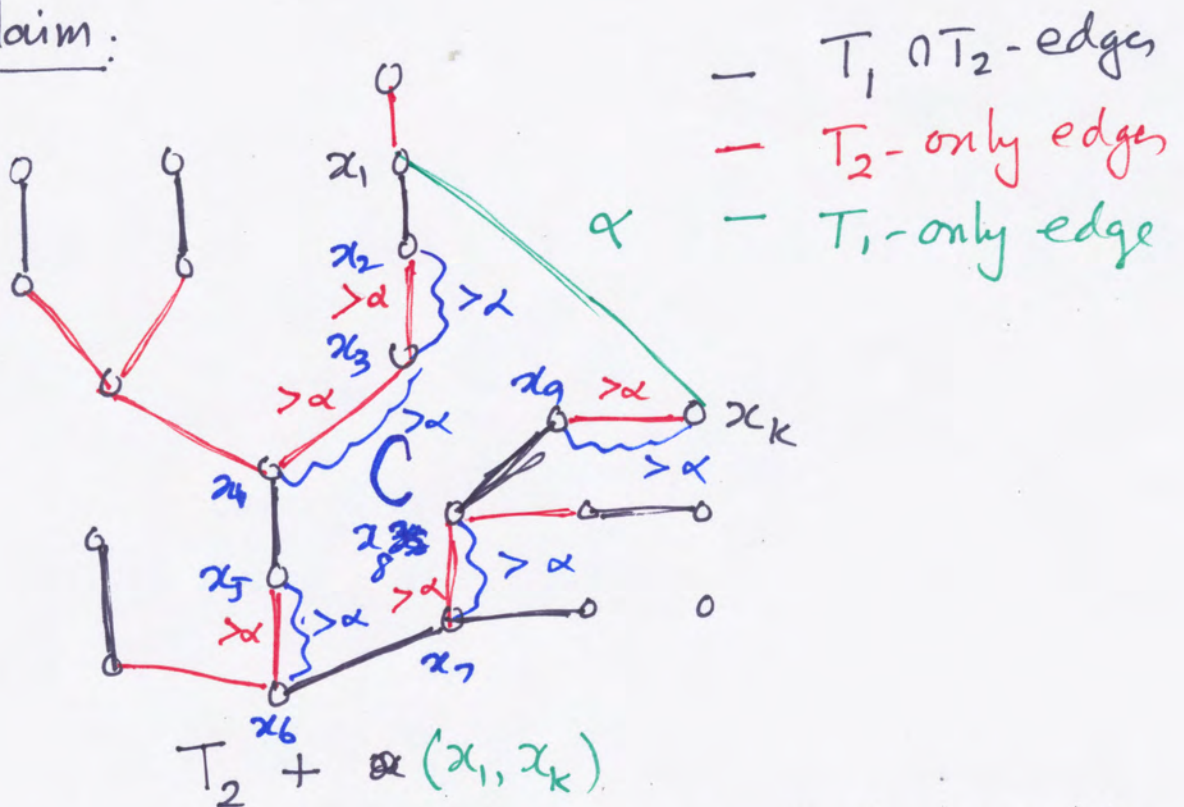 laim:
— T₁ ∩ T₂ - edges
— T₂ - only edges
— T₁ - only edge
x₁
α
x₂
>α
>α
x₃
>α
>α
x₉
>α
xₖ
>α
C
x₄
x
8
>α
>α
x₅
>α
>α
x₇
x₆
T₂ + (x₁, xₖ)